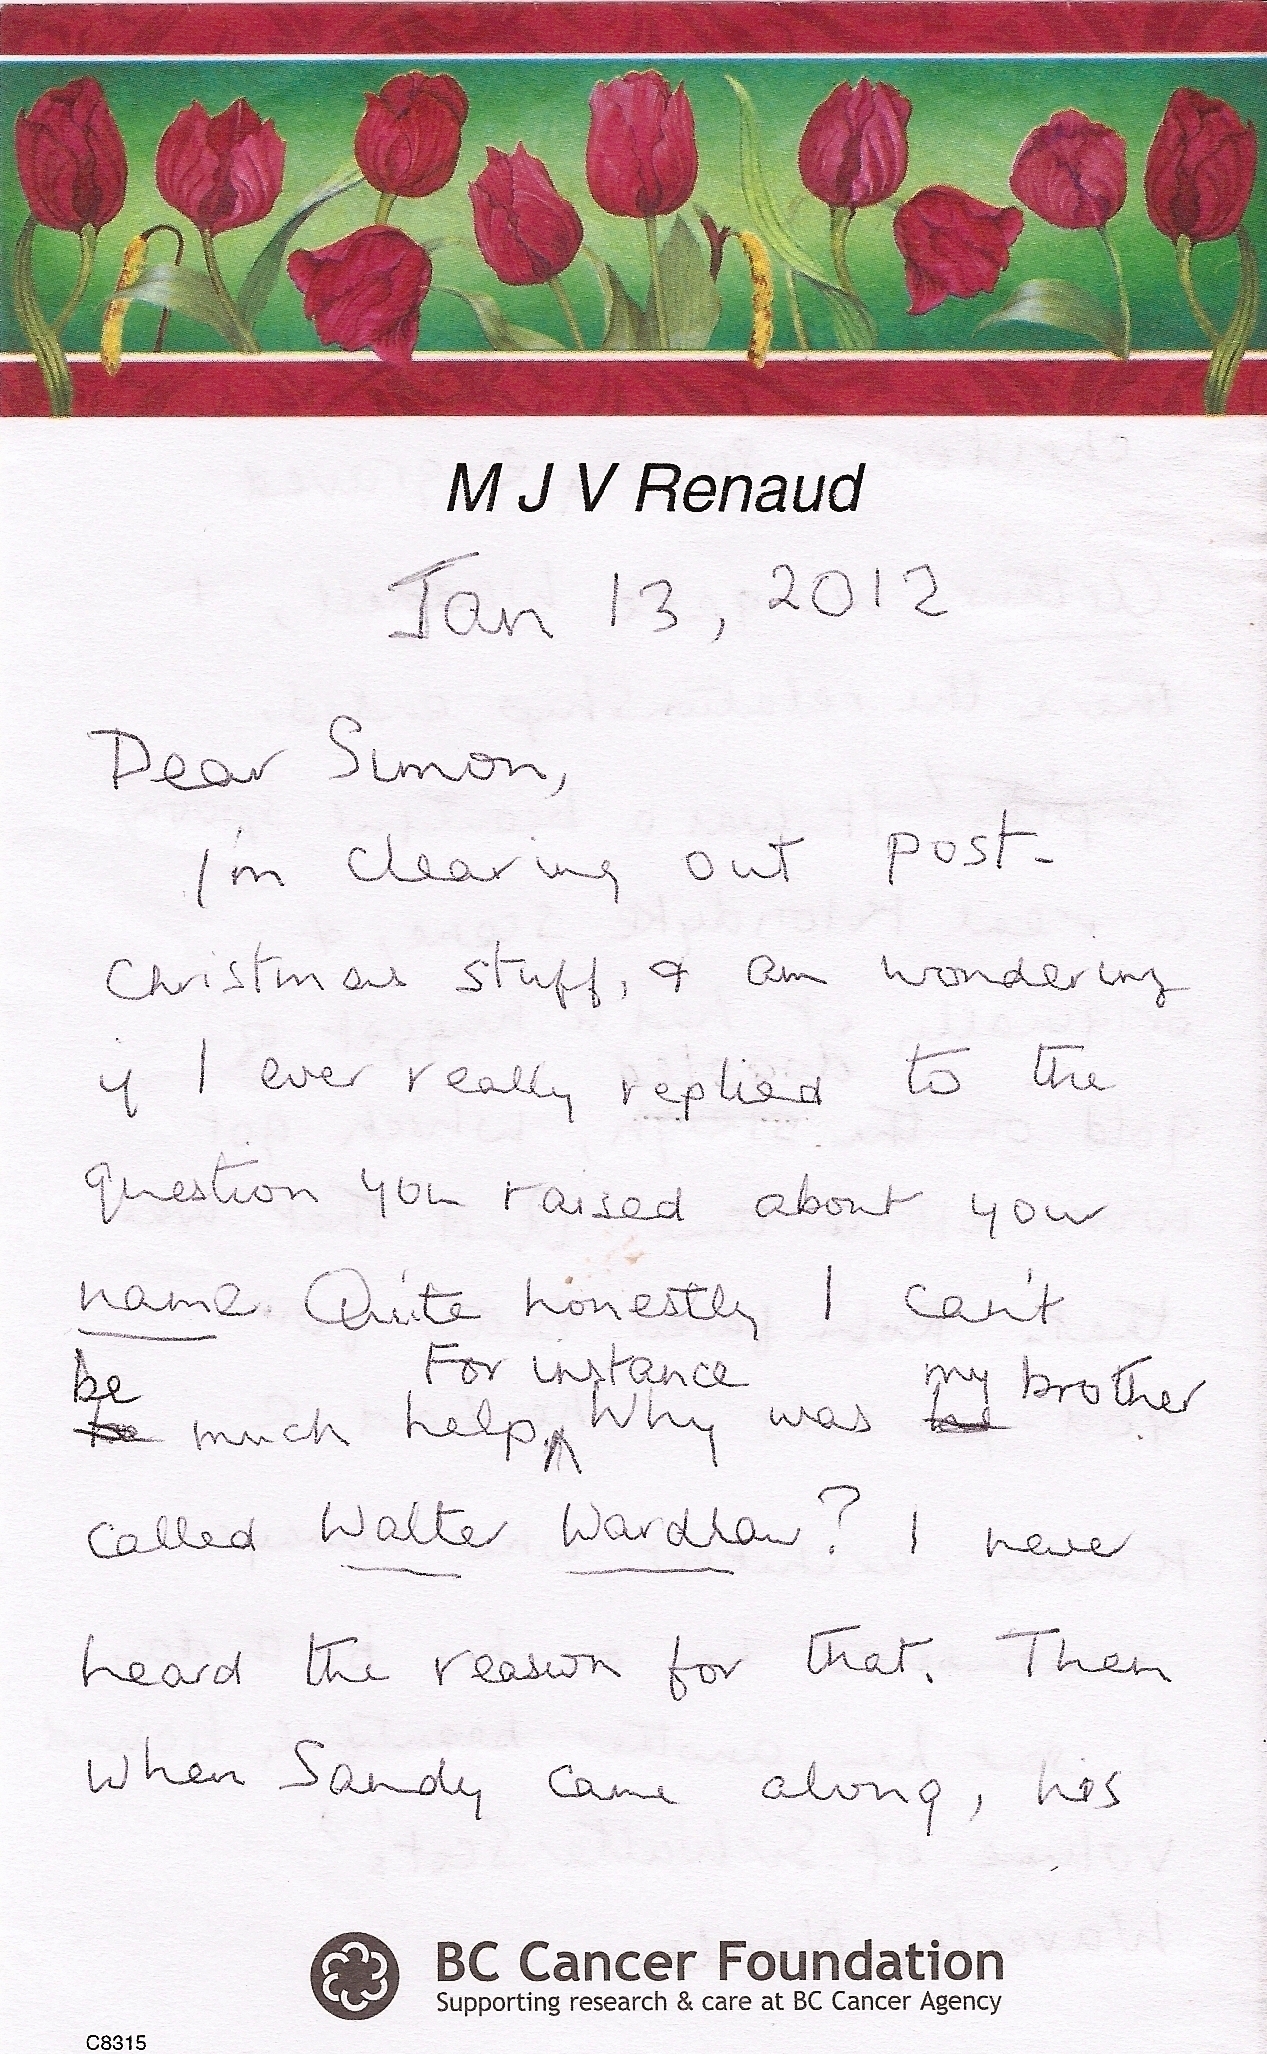 M J V Renaud
Jan 13, 2012
Dear Simon,
I'm clearing out post-
Christmas stuff, & am wondering
if I ever really replied to the
question you raised about your
name. Quite honestly I can't
be For instance my brother
much help, Why was
called Walter Wardlaw? I never
heard the reason for that. Then
when Sandy came along, his
BC Cancer Foundation
Supporting research & care at BC Cancer Agency
C8315